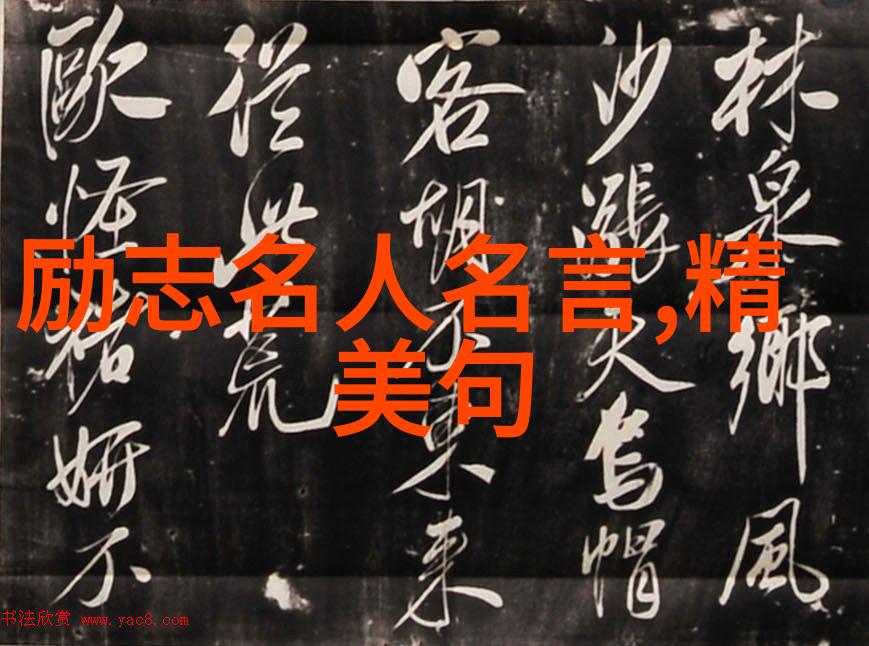 励志名人名言,精
美句
林泉鄉風
沙漲天烏帽
客胡不東來
從此荒
歐怪褚妍不
书法欣赏 www.yac8.com